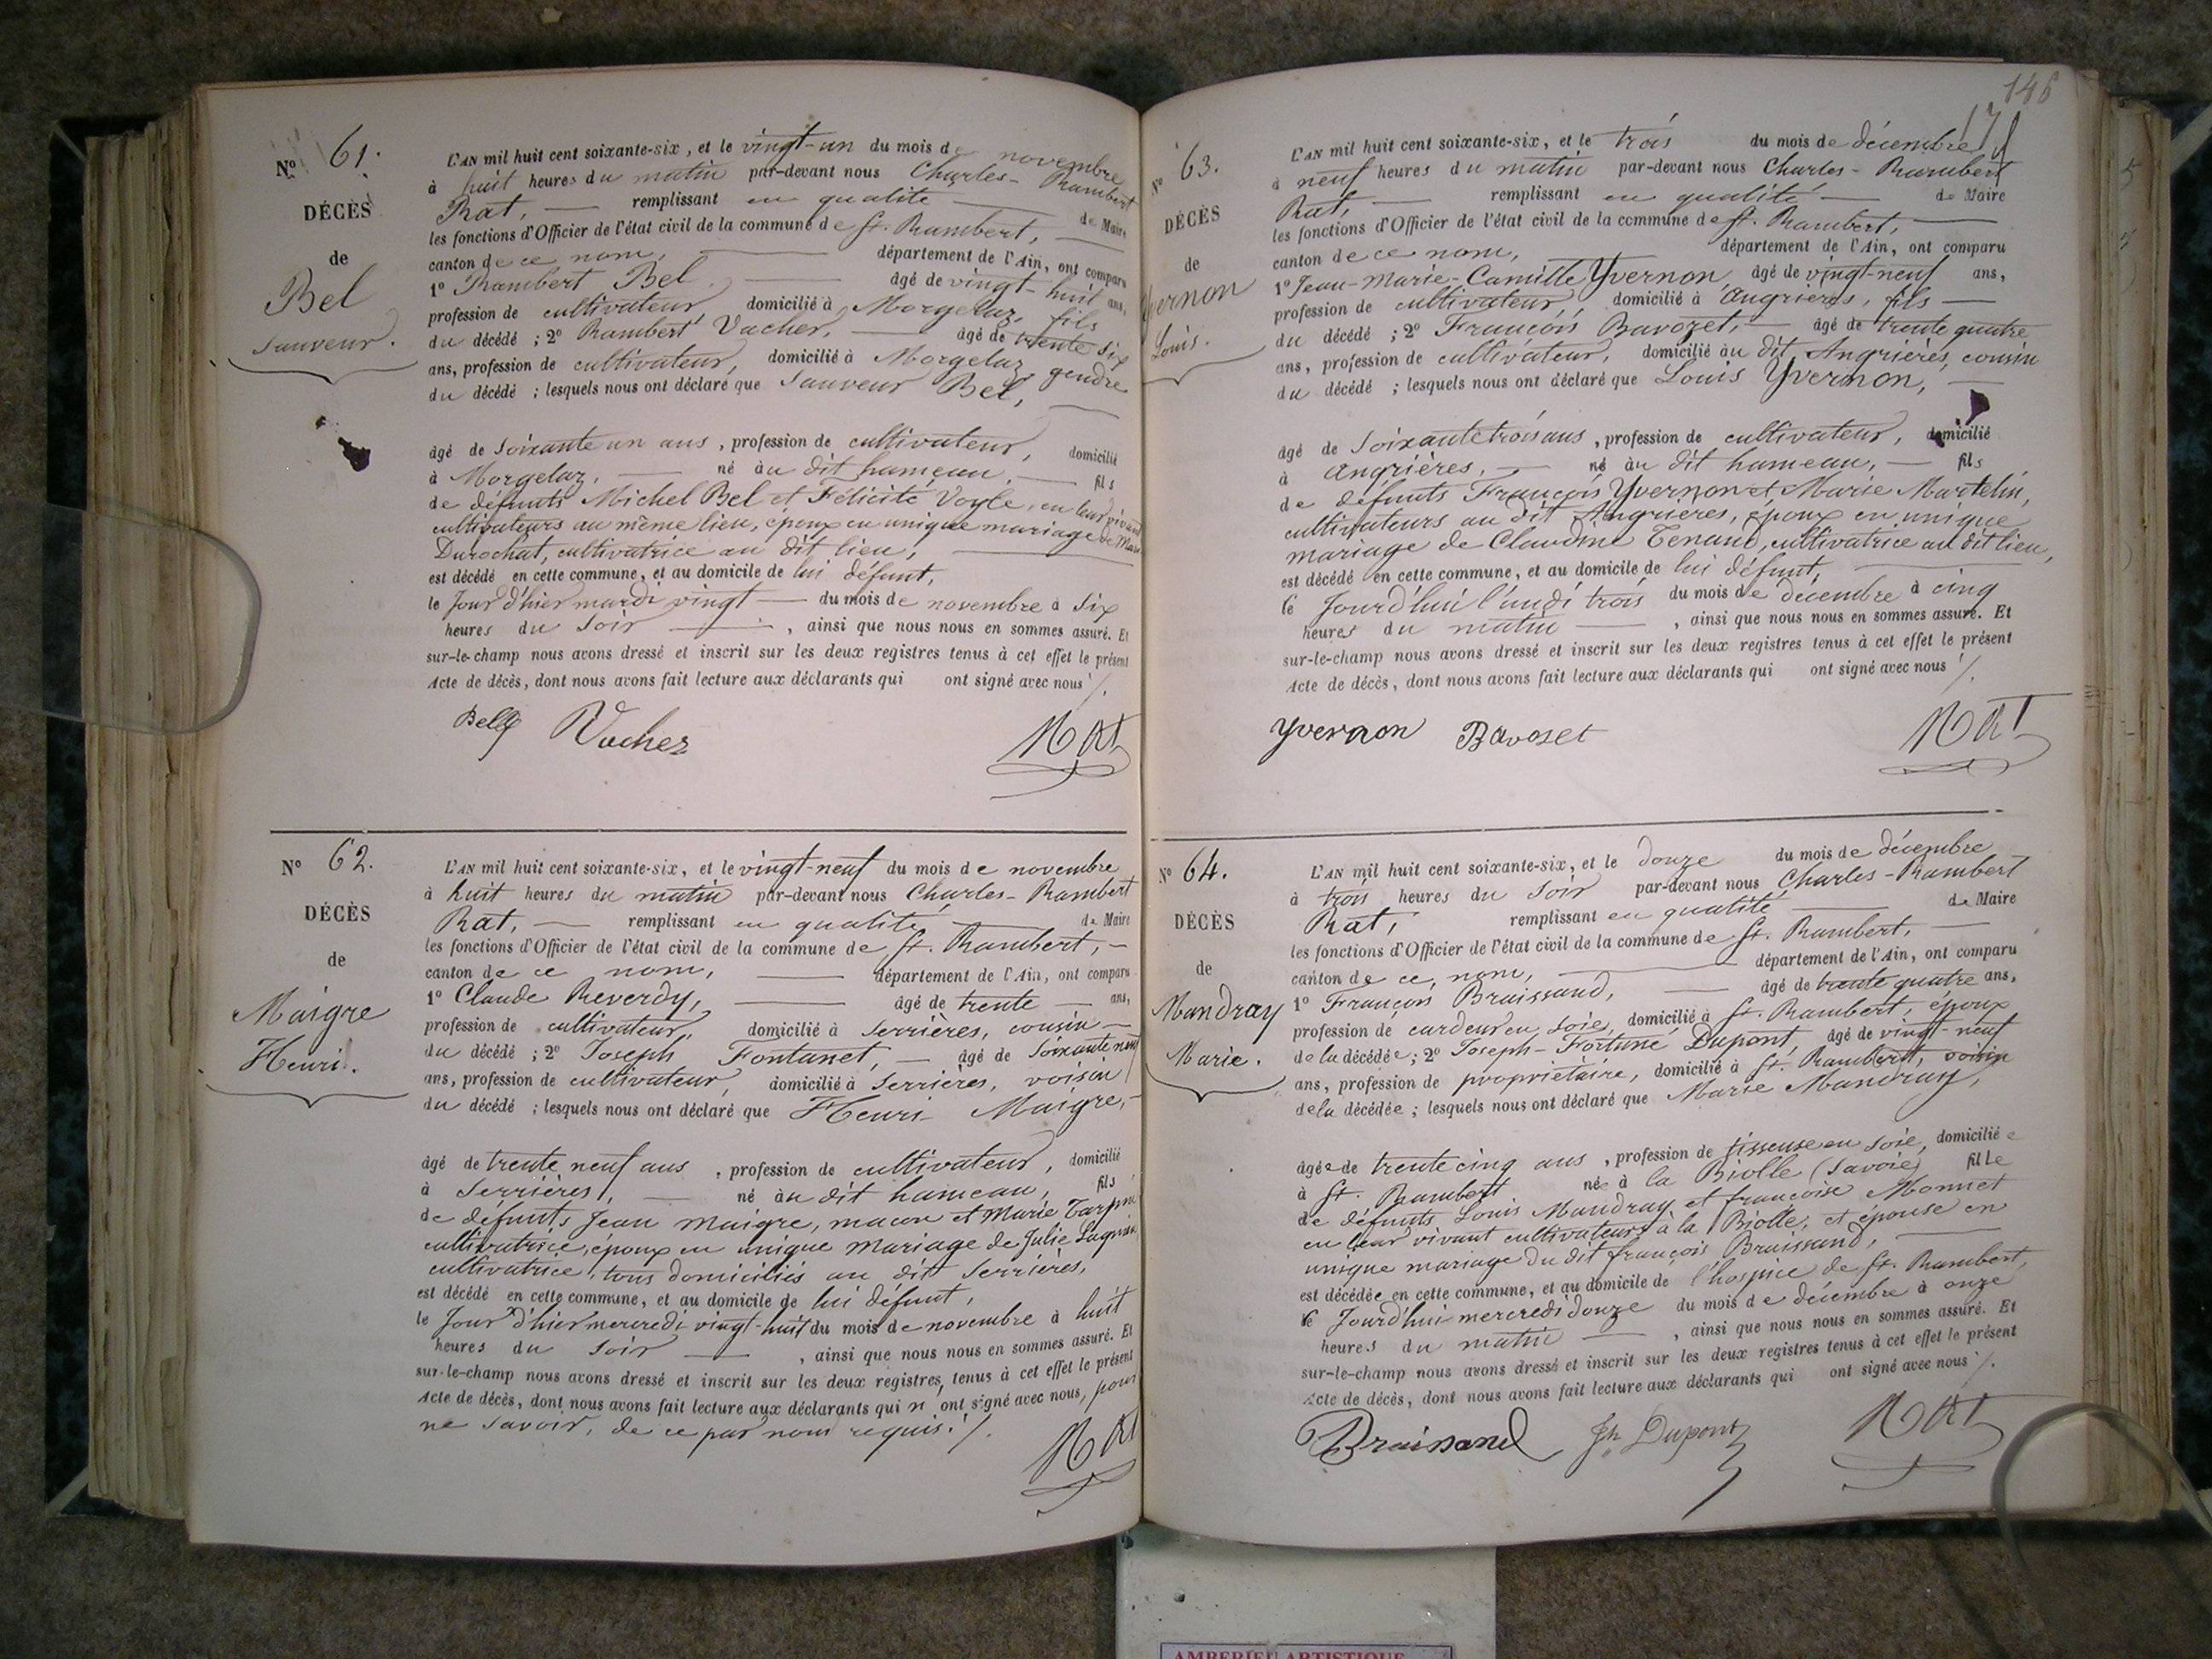 Nº 61.
DÉCÈS
de
Bel
Sauveur.
L'AN mil huit cent soixante-six, et le vingt-un du mois de novembre
à huit heures du matin par-devant nous Charles-Rambert
Rat, remplissant en qualité de Maire
les fonctions d'Officier de l'état civil de la commune de St. Rambert,
canton de ce nom, département de l'Ain, ont comparu
1º Rambert Bel, âgé de vingt-huit ans,
profession de cultivateur, domicilié à Morgelaz, fils
du décédé ; 2º Rambert Vacher, âgé de trente six
ans, profession de cultivateur, domicilié à Morgelaz, gendre
du décédé ; lesquels nous ont déclaré que Sauveur Bel,
âgé de soixante un ans, profession de cultivateur, domicilié
à Morgelaz, né au dit hameau, fils
de défunts Michel Bel et Félicité Voyle, en leur vivant
cultivateurs au même lieu, époux en unique mariage de Marie
Durochat, cultivatrice au dit lieu,
est décédé en cette commune, et au domicile de lui défunt,
le Jour d'hier mardi vingt du mois de novembre à six
heures du soir, ainsi que nous nous en sommes assuré. Et
sur-le-champ nous avons dressé et inscrit sur les deux registres tenus à cet effet le présent
Acte de décès, dont nous avons fait lecture aux déclarants qui ont signé avec nous ./.
Bel Vacher Rat
Nº 62.
DÉCÈS
de
Maigre
Henri.
L'AN mil huit cent soixante-six, et le vingt-neuf du mois de novembre
à huit heures du matin par-devant nous Charles-Rambert
Rat, remplissant en qualité de Maire
les fonctions d'Officier de l'état civil de la commune de St. Rambert,
canton de ce nom, département de l'Ain, ont comparu
1º Claude Reverdy, âgé de trente ans,
profession de cultivateur, domicilié à Serrières, cousin
du décédé ; 2º Joseph Fontanet, âgé de soixante neuf
ans, profession de cultivateur, domicilié à Serrières, voisin
du décédé ; lesquels nous ont déclaré que Henri Maigre,
âgé de trente neuf ans, profession de cultivateur, domicilié
à Serrières, né au dit hameau, fils
de défunts Jean Maigre, macon et Marie Tarpin
cultivatrice, époux en unique mariage de Julie
cultivatrice, tous domiciliés au dit Serrières,
est décédé en cette commune, et au domicile de lui défunt,
le Jour d'hier mercredi vingt-huit du mois de novembre à huit
heures du soir, ainsi que nous nous en sommes assuré. Et
sur-le-champ nous avons dressé et inscrit sur les deux registres tenus à cet effet le présent
Acte de décès, dont nous avons fait lecture aux déclarants qui n'ont signé avec nous, pour
ne savoir, de ce par nous requis ./.
Rat
146
Nº 63.
DÉCÈS
de
Yvernon
Louis.
L'AN mil huit cent soixante-six, et le trois du mois de décembre
à neuf heures du matin par-devant nous Charles-Rambert
Rat, remplissant en qualité de Maire
les fonctions d'Officier de l'état civil de la commune de St. Rambert,
canton de ce nom, département de l'Ain, ont comparu
1º Jean-Marie-Camille Yvernon, âgé de vingt-neuf ans,
profession de cultivateur, domicilié à Angrières, fils
du décédé ; 2º François Bavozet, âgé de trente quatre
ans, profession de cultivateur, domicilié au dit Angrières, cousin
du décédé ; lesquels nous ont déclaré que Louis Yvernon,
âgé de soixante trois ans, profession de cultivateur, domicilié
à Angrières, né au dit hameau, fils
de défunts François Yvernon et Marie Martelin,
cultivateurs au dit Angrières, époux en unique
mariage de Claudine Tenand, cultivatrice au dit lieu,
est décédé en cette commune, et au domicile de lui défunt,
le Jourd'hui lundi trois du mois de décembre à cinq
heures du matin, ainsi que nous nous en sommes assuré. Et
sur-le-champ nous avons dressé et inscrit sur les deux registres tenus à cet effet le présent
Acte de décès, dont nous avons fait lecture aux déclarants qui ont signé avec nous ./.
Yvernon Bavozet Rat
Nº 64.
DÉCÈS
de
Mandray
Marie.
L'AN mil huit cent soixante-six, et le douze du mois de décembre
à trois heures du soir par-devant nous Charles-Rambert
Rat, remplissant en qualité de Maire
les fonctions d'Officier de l'état civil de la commune de St. Rambert,
canton de ce nom, département de l'Ain, ont comparu
1º François Braissand, âgé de trente quatre ans,
profession de cardeur en soie, domicilié à St. Rambert, époux
de la décédée ; 2º Joseph-Fortuné Dupont, âgé de vingt-neuf
ans, profession de propriétaire, domicilié à St. Rambert, voisin
de la décédée ; lesquels nous ont déclaré que Marie Mandray,
âgée de trente cinq ans, profession de tisseuse en soie, domiciliée
à St. Rambert née à la Biolle (Savoie) fille
de défunts Louis Mandray et françoise Monnet
en leur vivant cultivateurs à la Biolle, et épouse en
unique mariage du dit françois Braissand,
est décédée en cette commune, et au domicile de l'hospice de St. Rambert,
le Jourd'hui mercredi douze du mois de décembre à onze
heures du matin, ainsi que nous nous en sommes assuré. Et
sur-le-champ nous avons dressé et inscrit sur les deux registres tenus à cet effet le présent
Acte de décès, dont nous avons fait lecture aux déclarants qui ont signé avec nous ./.
Braissand Jh Dupont Rat
AMBERIEU ARTISTIQUE